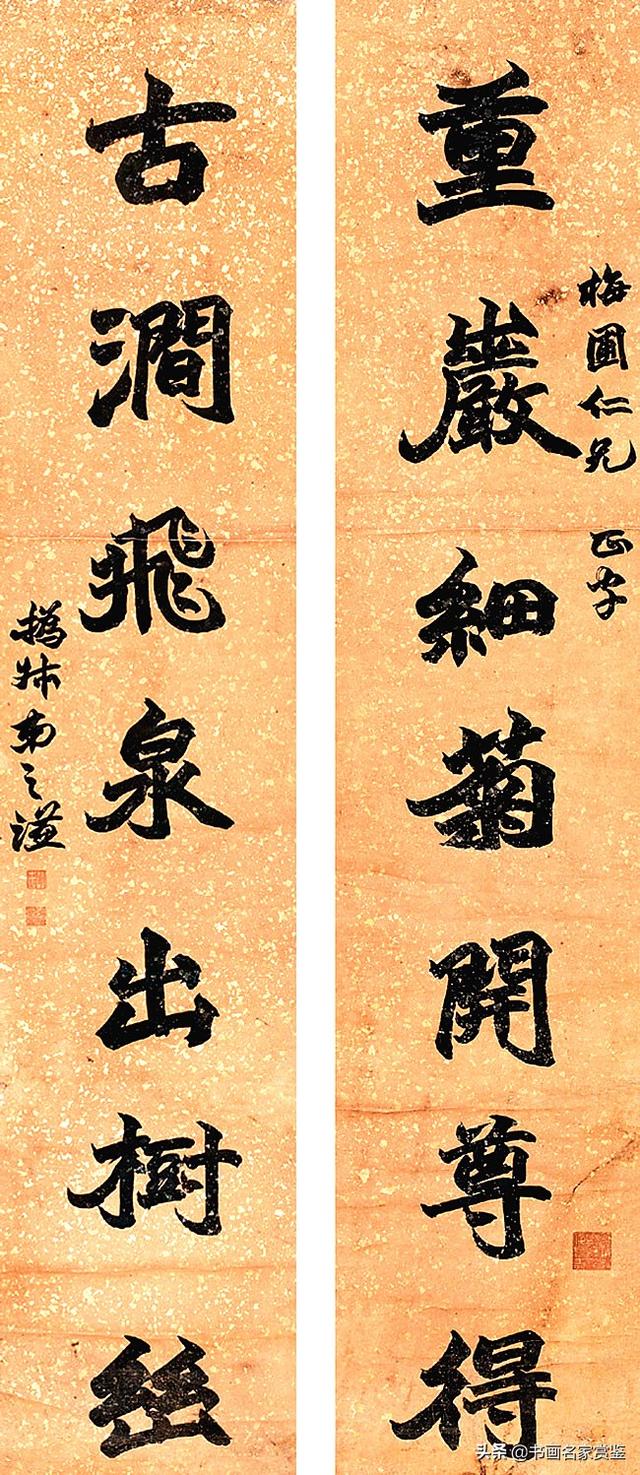 重巖細菊開尊得
梅圃仁兄 正字
古澗飛泉出樹幽
撝叔弟之謙
头条 @书画名家赏鉴